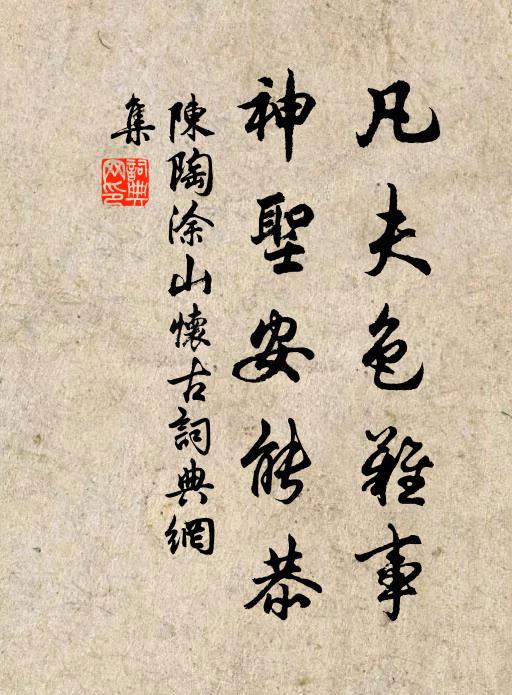 凡夫色難事
神聖安能恭
陳陶涂山懷古詞典網
集
詞典
网印